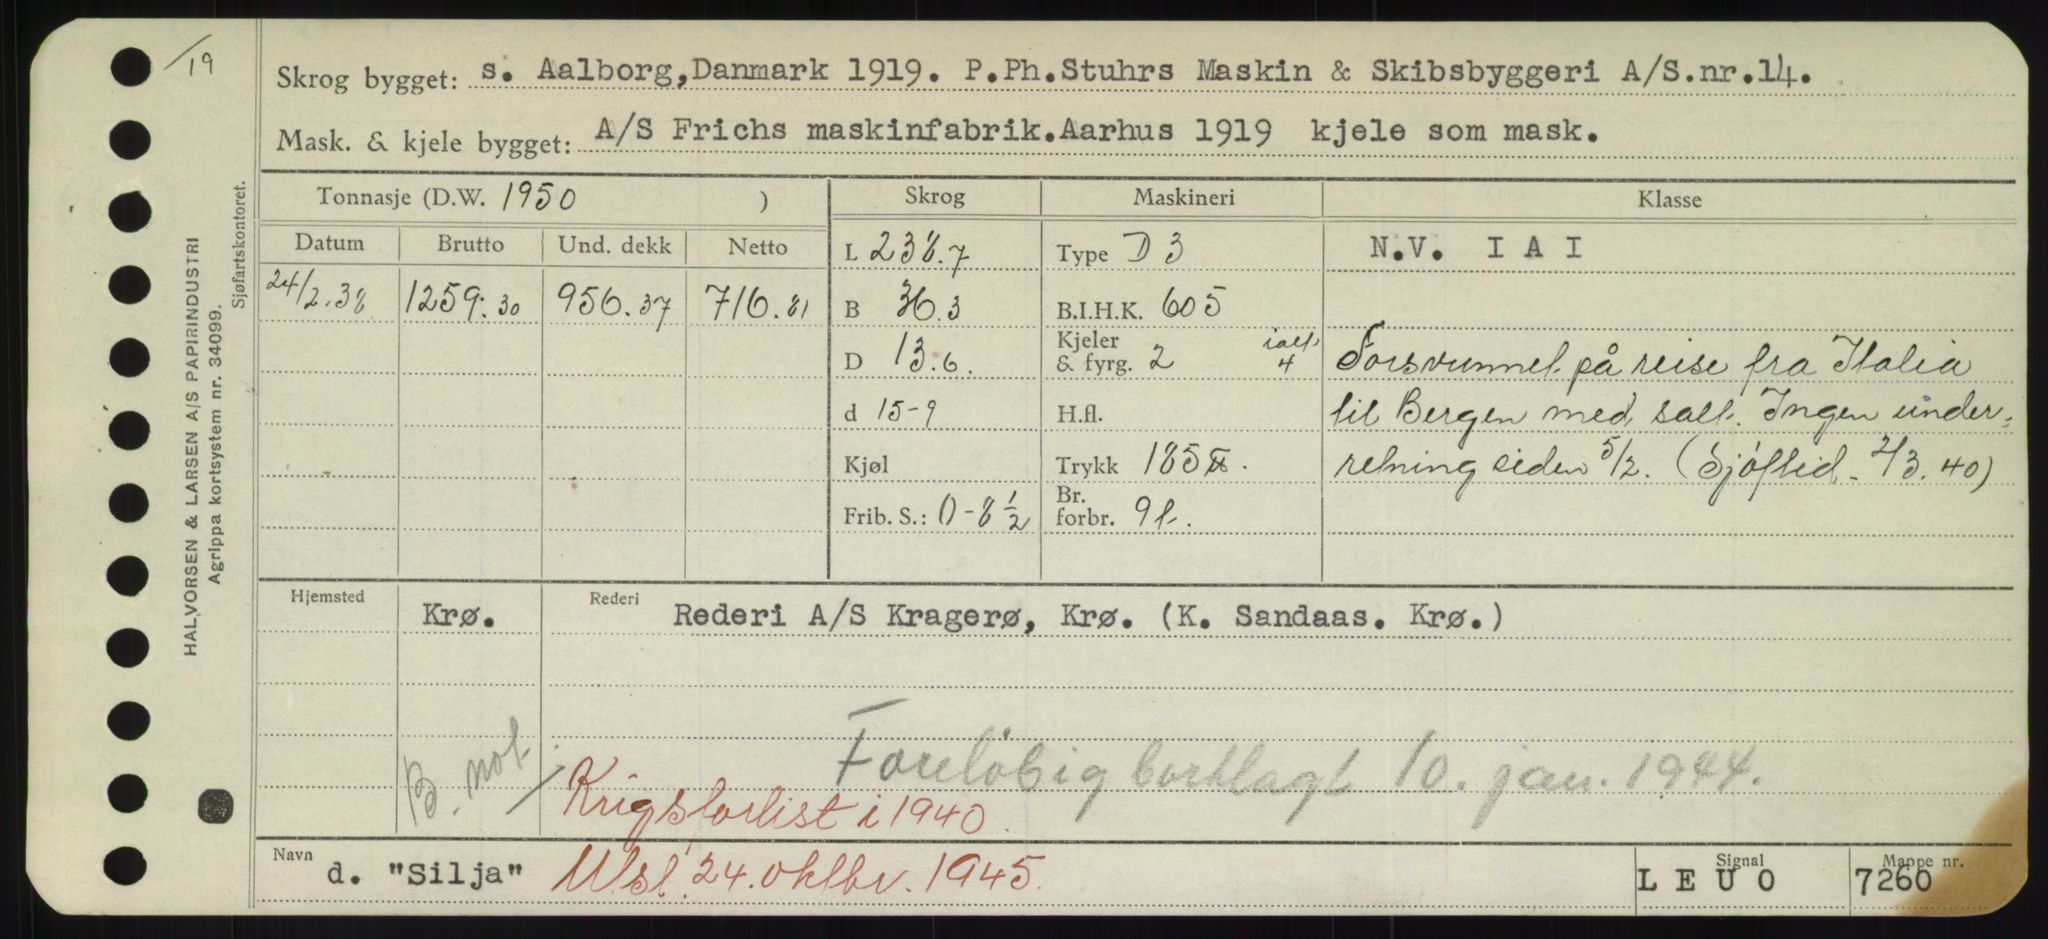 /19
Skrog bygget: s. Aalborg,Danmark 1919. P.Ph.Stuhrs Maskin & Skibsbyggeri A/S.nr.14.
Mask. & kjele bygget: A/S Frichs maskinfabrik.Aarhus 1919 kjele som mask.
HALVORSEN & LARSEN A/S PAPIRINDUSTRI
Agrippa kortsystem nr. 34099.
Sjøfartskontoret.
Tonnasje (D.W. 1950 ) Skrog Maskineri Klasse
Datum Brutto Und. dekk Netto L 238.7 Type D 3 N.V. I A I
24/2.38 1259.30 956.37 716.81 B 36.3 B.I.H.K. 605
D 13.6. Kjeler & fyrg. 2 ialt 4 Forsvunnet på reise fra Italia
d 15-9 H.fl. til Bergen med salt. Ingen under-
Kjøl Trykk 185 lbs. retning siden 5/2. (Sjøftid. 2/3.40)
Frib. S.: 0-8 1/2 Br. forbr. 9 t.
Hjemsted Krø. Rederi Rederi A/S Kragerø, Krø. (K. Sandaas. Krø.)
B. not Foreløbig bortlagt 10. jan. 1944.
Krigsforlist i 1940.
Navn d. "Silja" Utsl. 24. oktbr. 1945. Signal L E U O Mappe nr. 7260